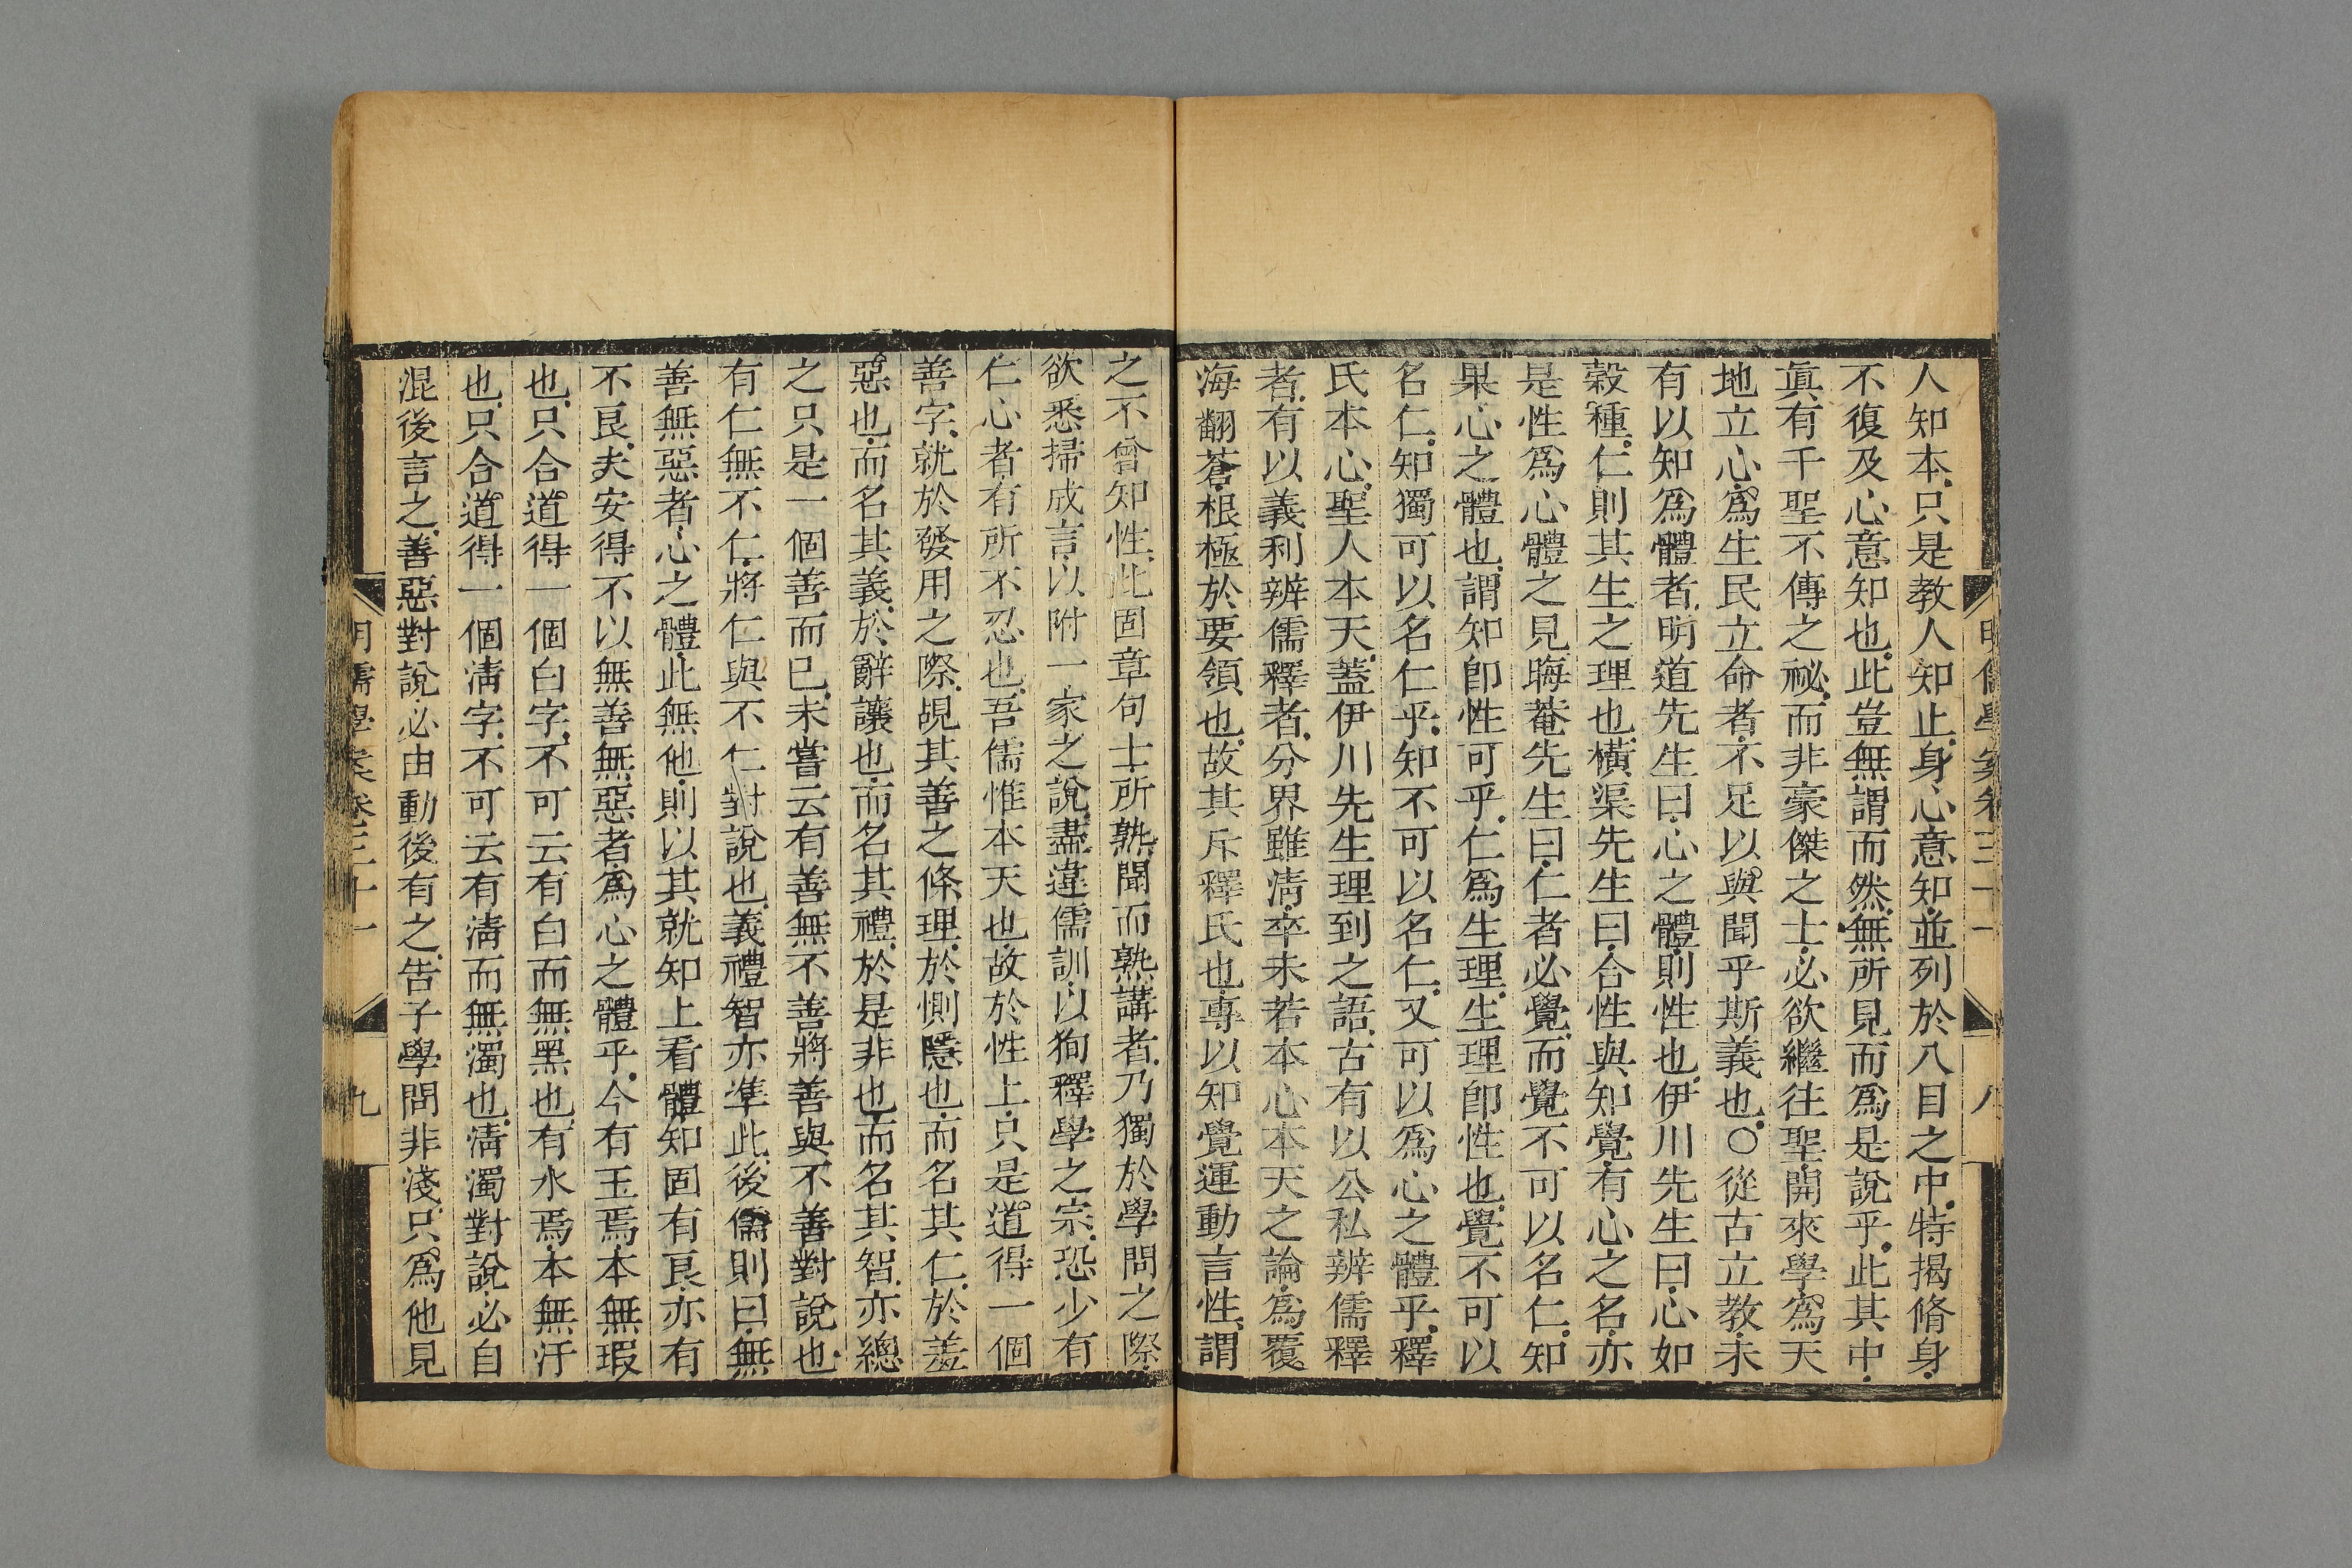 人知本只是教人知止身心意知並列於八目之中特揭脩身
不復及心意知也此豈無謂而然無所見而爲是說乎此其中
眞有千聖不傳之祕而非豪傑之士必欲繼往聖開來學爲天
地立心爲生民立命者不足以與聞乎斯義也○從古立教未
有以知爲體者明道先生曰心之體則性也伊川先生曰心如
穀種仁則其生之理也橫渠先生曰合性與知覺有心之名亦
是性爲心體之見晦菴先生曰仁者必覺而覺不可以名仁知
果心之體也謂知卽性可乎仁爲生理生理卽性也覺不可以
名仁知獨可以名仁乎知不可以名仁又可以爲心之體乎釋
氏本心聖人本天蓋伊川先生理到之語古有以公私辨儒釋
者有以義利辨儒釋者分界雖淸卒未若本心本天之論爲覆
海翻蒼根極於要領也故其斥釋氏也專以知覺運動言性謂
明儒學案卷三十一
八
之不曾知性此固章句士所熟聞而熟講者乃獨於學問之際
欲悉掃成言以附一家之說盡違儒訓以狥釋學之宗恐少有
仁心者有所不忍也吾儒惟本天也故於性上只是道得一個
善字就於發用之際覘其善之條理於惻隱也而名其仁於羞
惡也而名其義於辭讓也而名其禮於是非也而名其智亦總
之只是一個善而已未嘗云有善無不善將善與不善對說也
有仁無不仁將仁與不仁對說也義禮智亦準此後儒則曰無
善無惡者心之體此無他則以其就知上看體知固有良亦有
不良夫安得不以無善無惡者爲心之體乎今有玉焉本無瑕
也只合道得一個白字不可云有白而無黑也有水焉本無汙
也只合道得一個淸字不可云有淸而無濁也淸濁對說必自
混後言之善惡對說必由動後有之告子學問非淺只爲他見
明儒學案卷三十一
九